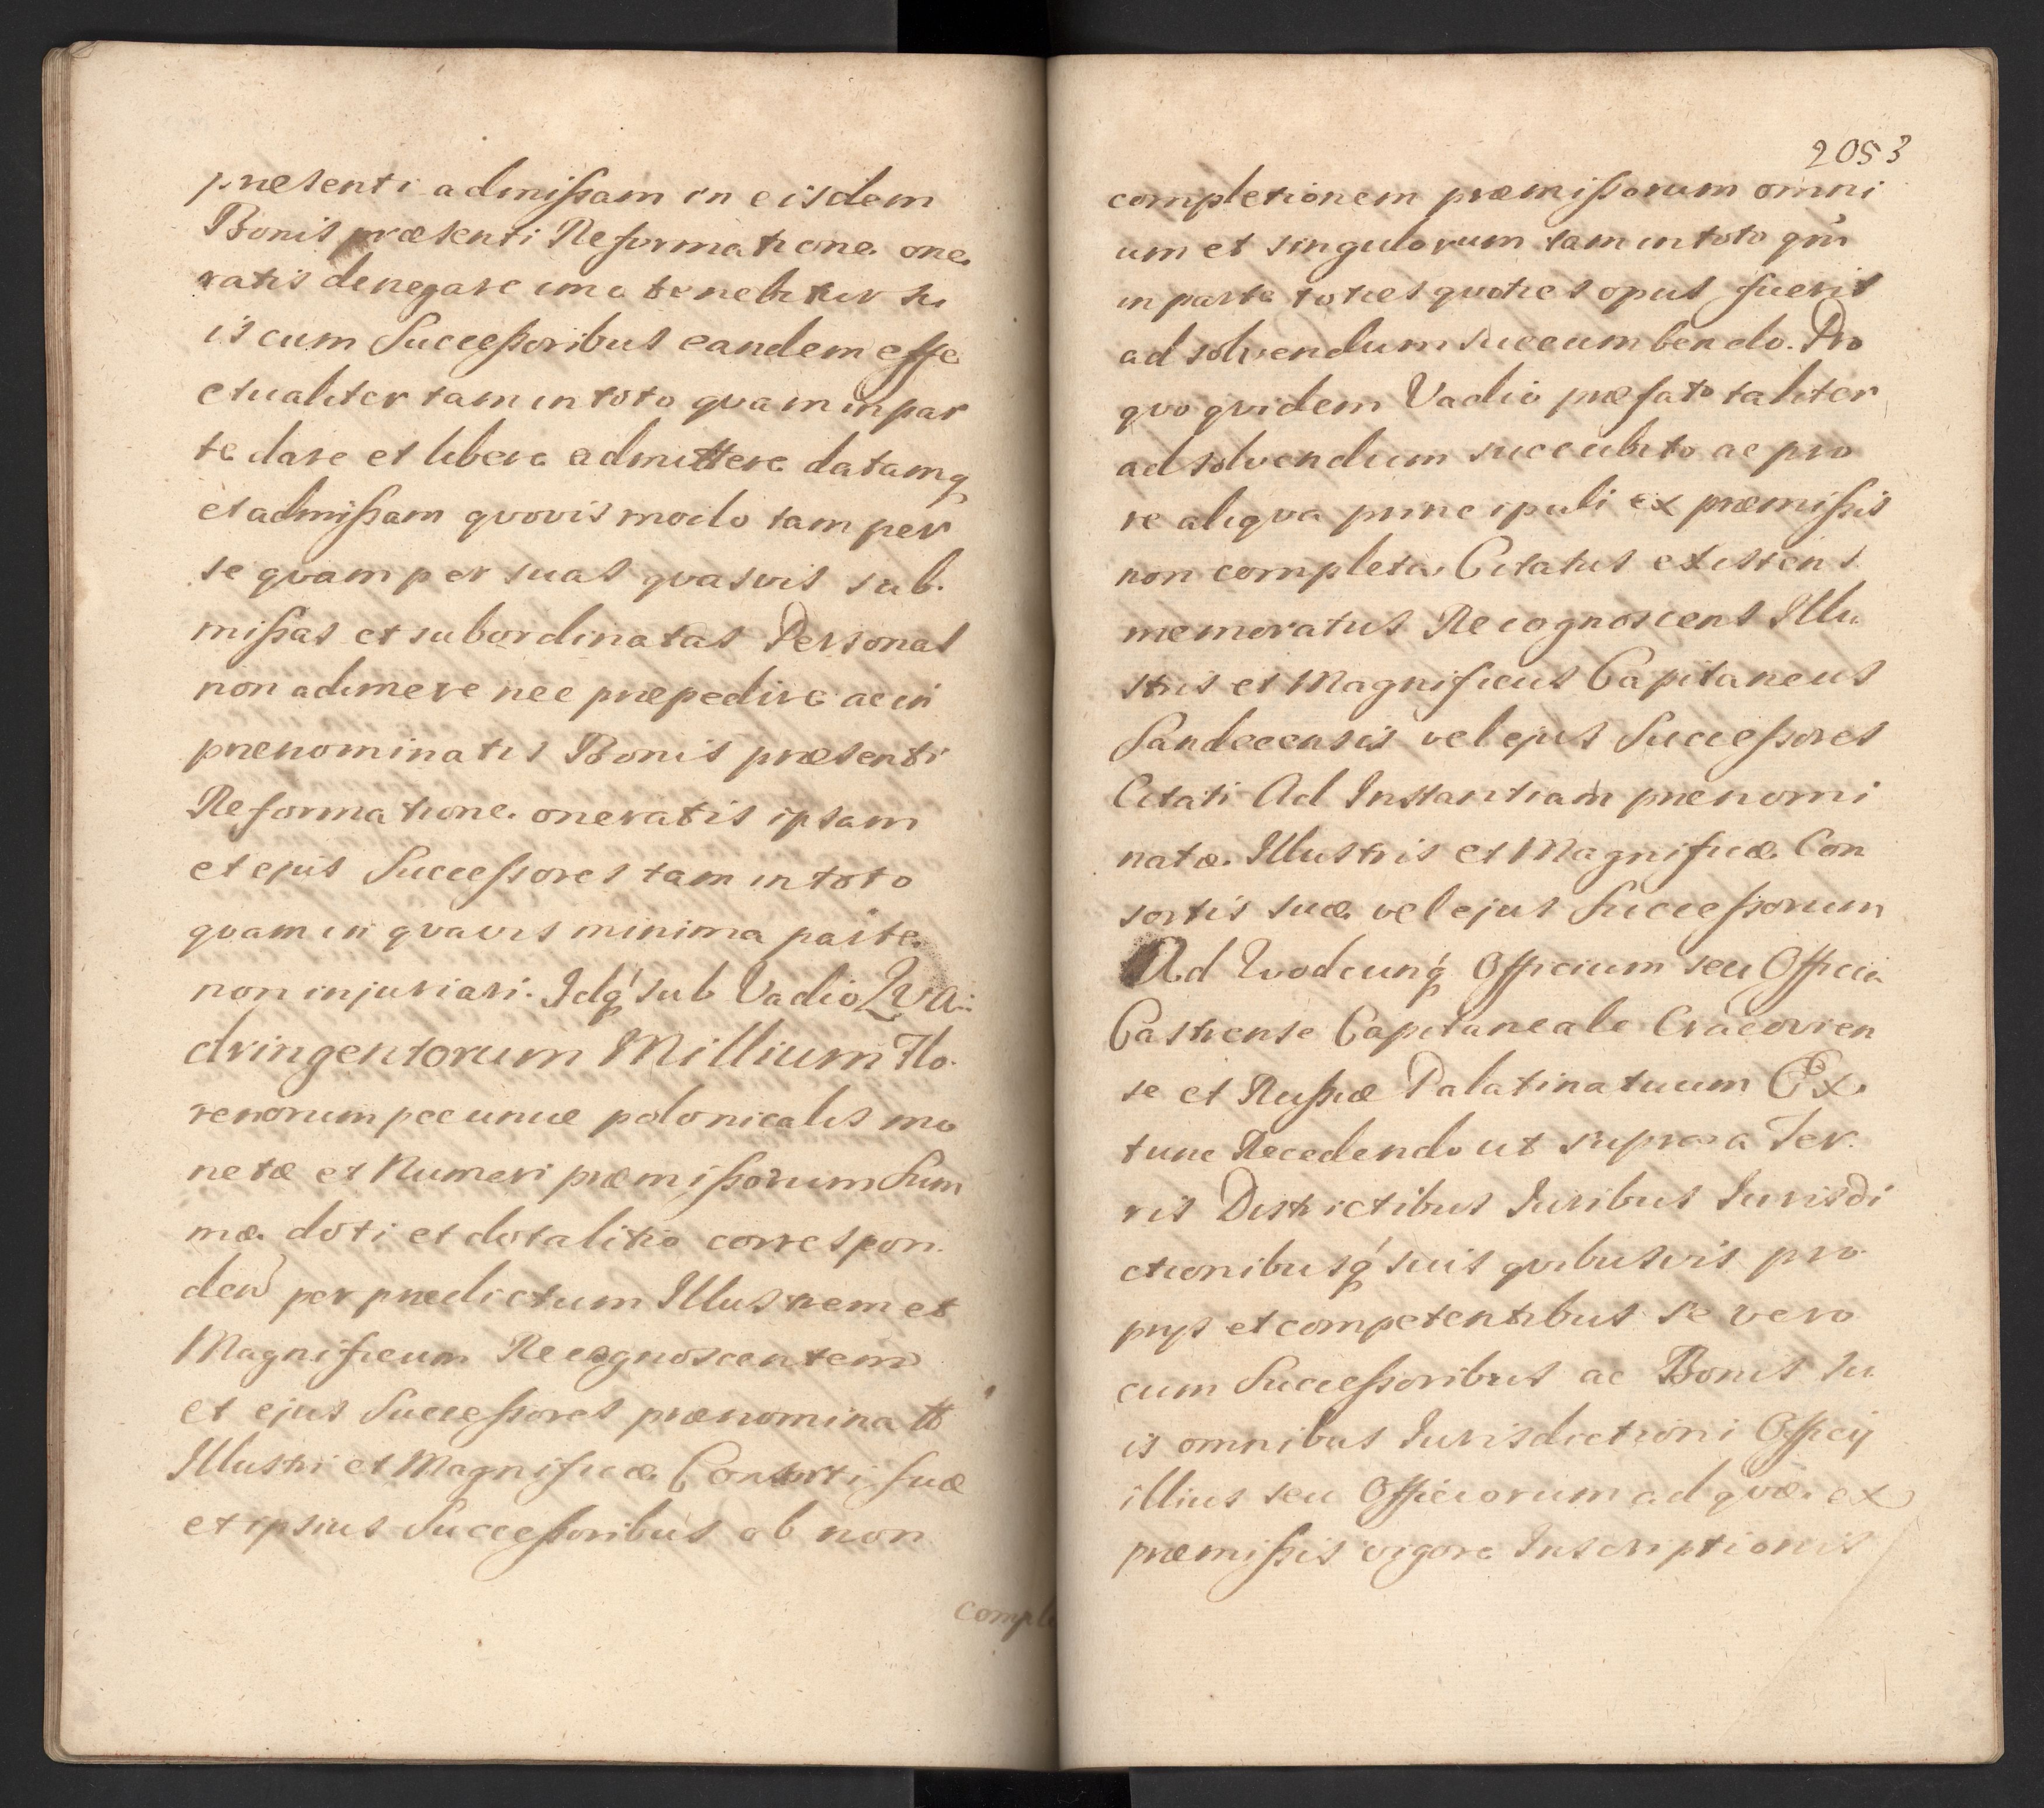 præsenti admißam in eisdem
Bonis præsenti Reformatione one
ratis denegare imo tenebitur su
is cum Succeßoribus eandem effe
ctualiter tam in toto qvam in par
te dare et libere admittere datamq
et admißam qvovis modo tam per
se qvam per suas qvasvis sub.
mißas et subordinatas Personas
non adimere nec præpedire ac in
prænominatis Bonis præsenti
Reformatione oneratis ipsam
et ejus Succeßores tam in toto
qvam in qvavis minima parte
non injuriari. Idq' sub Vadio Qva:
dringentorum Millium Flo.
renorum pecuniæ polonicalis mo
netæ et Numeri præmißorum Sum
mæ doti et dotalitio correspon.
den per prædictum Illustrem et
Magnificum Recognoscentem
et ejus Succeßores prænominatæ
Illustri et Magnificæ Consorti suæ
et ipsius Succeßoribus ob non
comple
2053
completionem præmißorum omni
um et singulorum tam in toto qm
in parte toties qvoties opus fuerit
ad solvendum succumbendo. Pro
qvo qvidem Vadio præfato taliter
ad solvendum succubito ac pro
re aliqva principali ex præmißis
non completa Citatus existens
memoratus Recognoscens Illu
stris et Magnificus Capitaneus
Sandecensis vel ejus Succeßores
Citati Ad Instantiam prænomi
natæ Illustris et Magnificæ Con
sortis suæ vel ejus Succeßorum
Ad Qvodcunq' Officium seu Officia
Castrense Capitaneale Cracovien
se et Rußiæ Palatinatuum Ex
tunc Recedendo ut supra a Ter.
ris Districtibus Iuribus Iurisdi
ctionibusq' suis qvibusvis pro
prys et competentibus se vero
cum Succeßoribus ac Bonis su
is omnibus Iurisdictioni Officy
illius seu Officiorum ad qvæ ex
præmißis vigore Inscriptionis